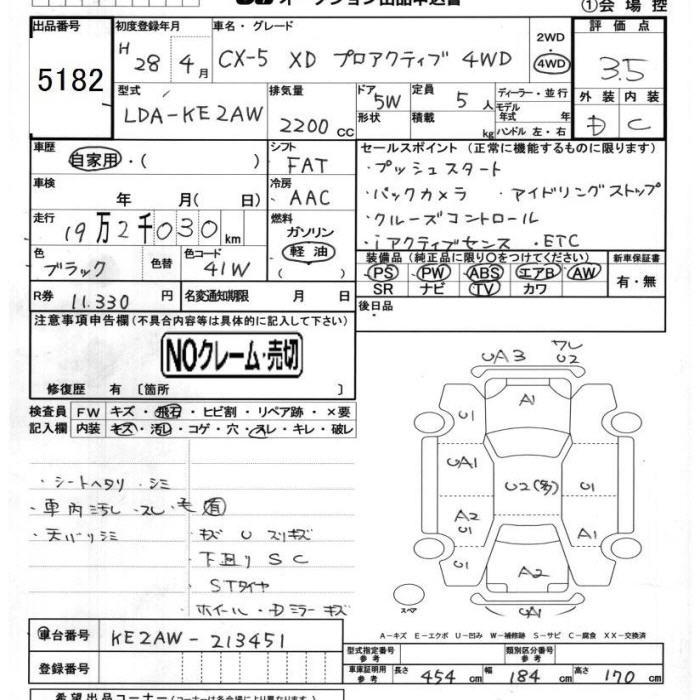 オークション出品申込書
①会場控
出品番号 初度登録年月 車名・グレード 評価点
5182
H 28年 4月 CX-5 XD プロアクティブ 4WD 2WD・4WD 3.5
型式 排気量 ドア 定員 ディーラー・並行 外装 内装
LDA-KE2AW 2200cc 5W 5人 モデル年式 年 D C
形状 積載 kg ハンドル 左・右
車歴 シフト セールスポイント(正常に機能するものに限ります)
自家用・( ) FAT ・プッシュスタート
車検 冷房 ・バックカメラ ・アイドリングストップ
年 月( 日) AAC
走行 燃料 ・クルーズコントロール
19万2千030km ガソリン ・iアクティブセンス ・ETC
色 色替 色コード 軽油 装備品(純正品に限り○をつけてください) 新車保証書
ブラック 41W ( ) PS PW ABS エアB AW 有・無
SR ナビ TV カワ
R券 11.330円 名変通知期限 月 日 後日品
注意事項申告欄(不具合内容等は具体的に記入して下さい)
NOクレーム・売切
修復歴 有 〔箇所 〕
検査員 FW キズ・飛石・ヒビ割・リペア跡・×要
記入欄 内装 キズ・汚レ・コゲ・穴・スレ・キレ・破レ
・シートヘタリ・シミ
・車内汚レ・スレ・毛有
・天バリシミ
・キズ U スリキズ
・下廻り S C
・STタイヤ
・ホイール・Dミラーキズ
UA3 ワレ U2
A1
U1
UA1 U2(多) U1
A2 A1
U1
A2
UA1
スペア
A-キズ E-エクボ U-凹み W-補修跡 S-サビ C-腐食 XX-交換済
車台番号 KE2AW-213451
登録番号
型式指定番号 参考 類別区分番号 参考
車庫証明用 参考 長さ 454cm 幅 184cm 高さ 170cm
希望出品コーナー(コーナー名は各会場により